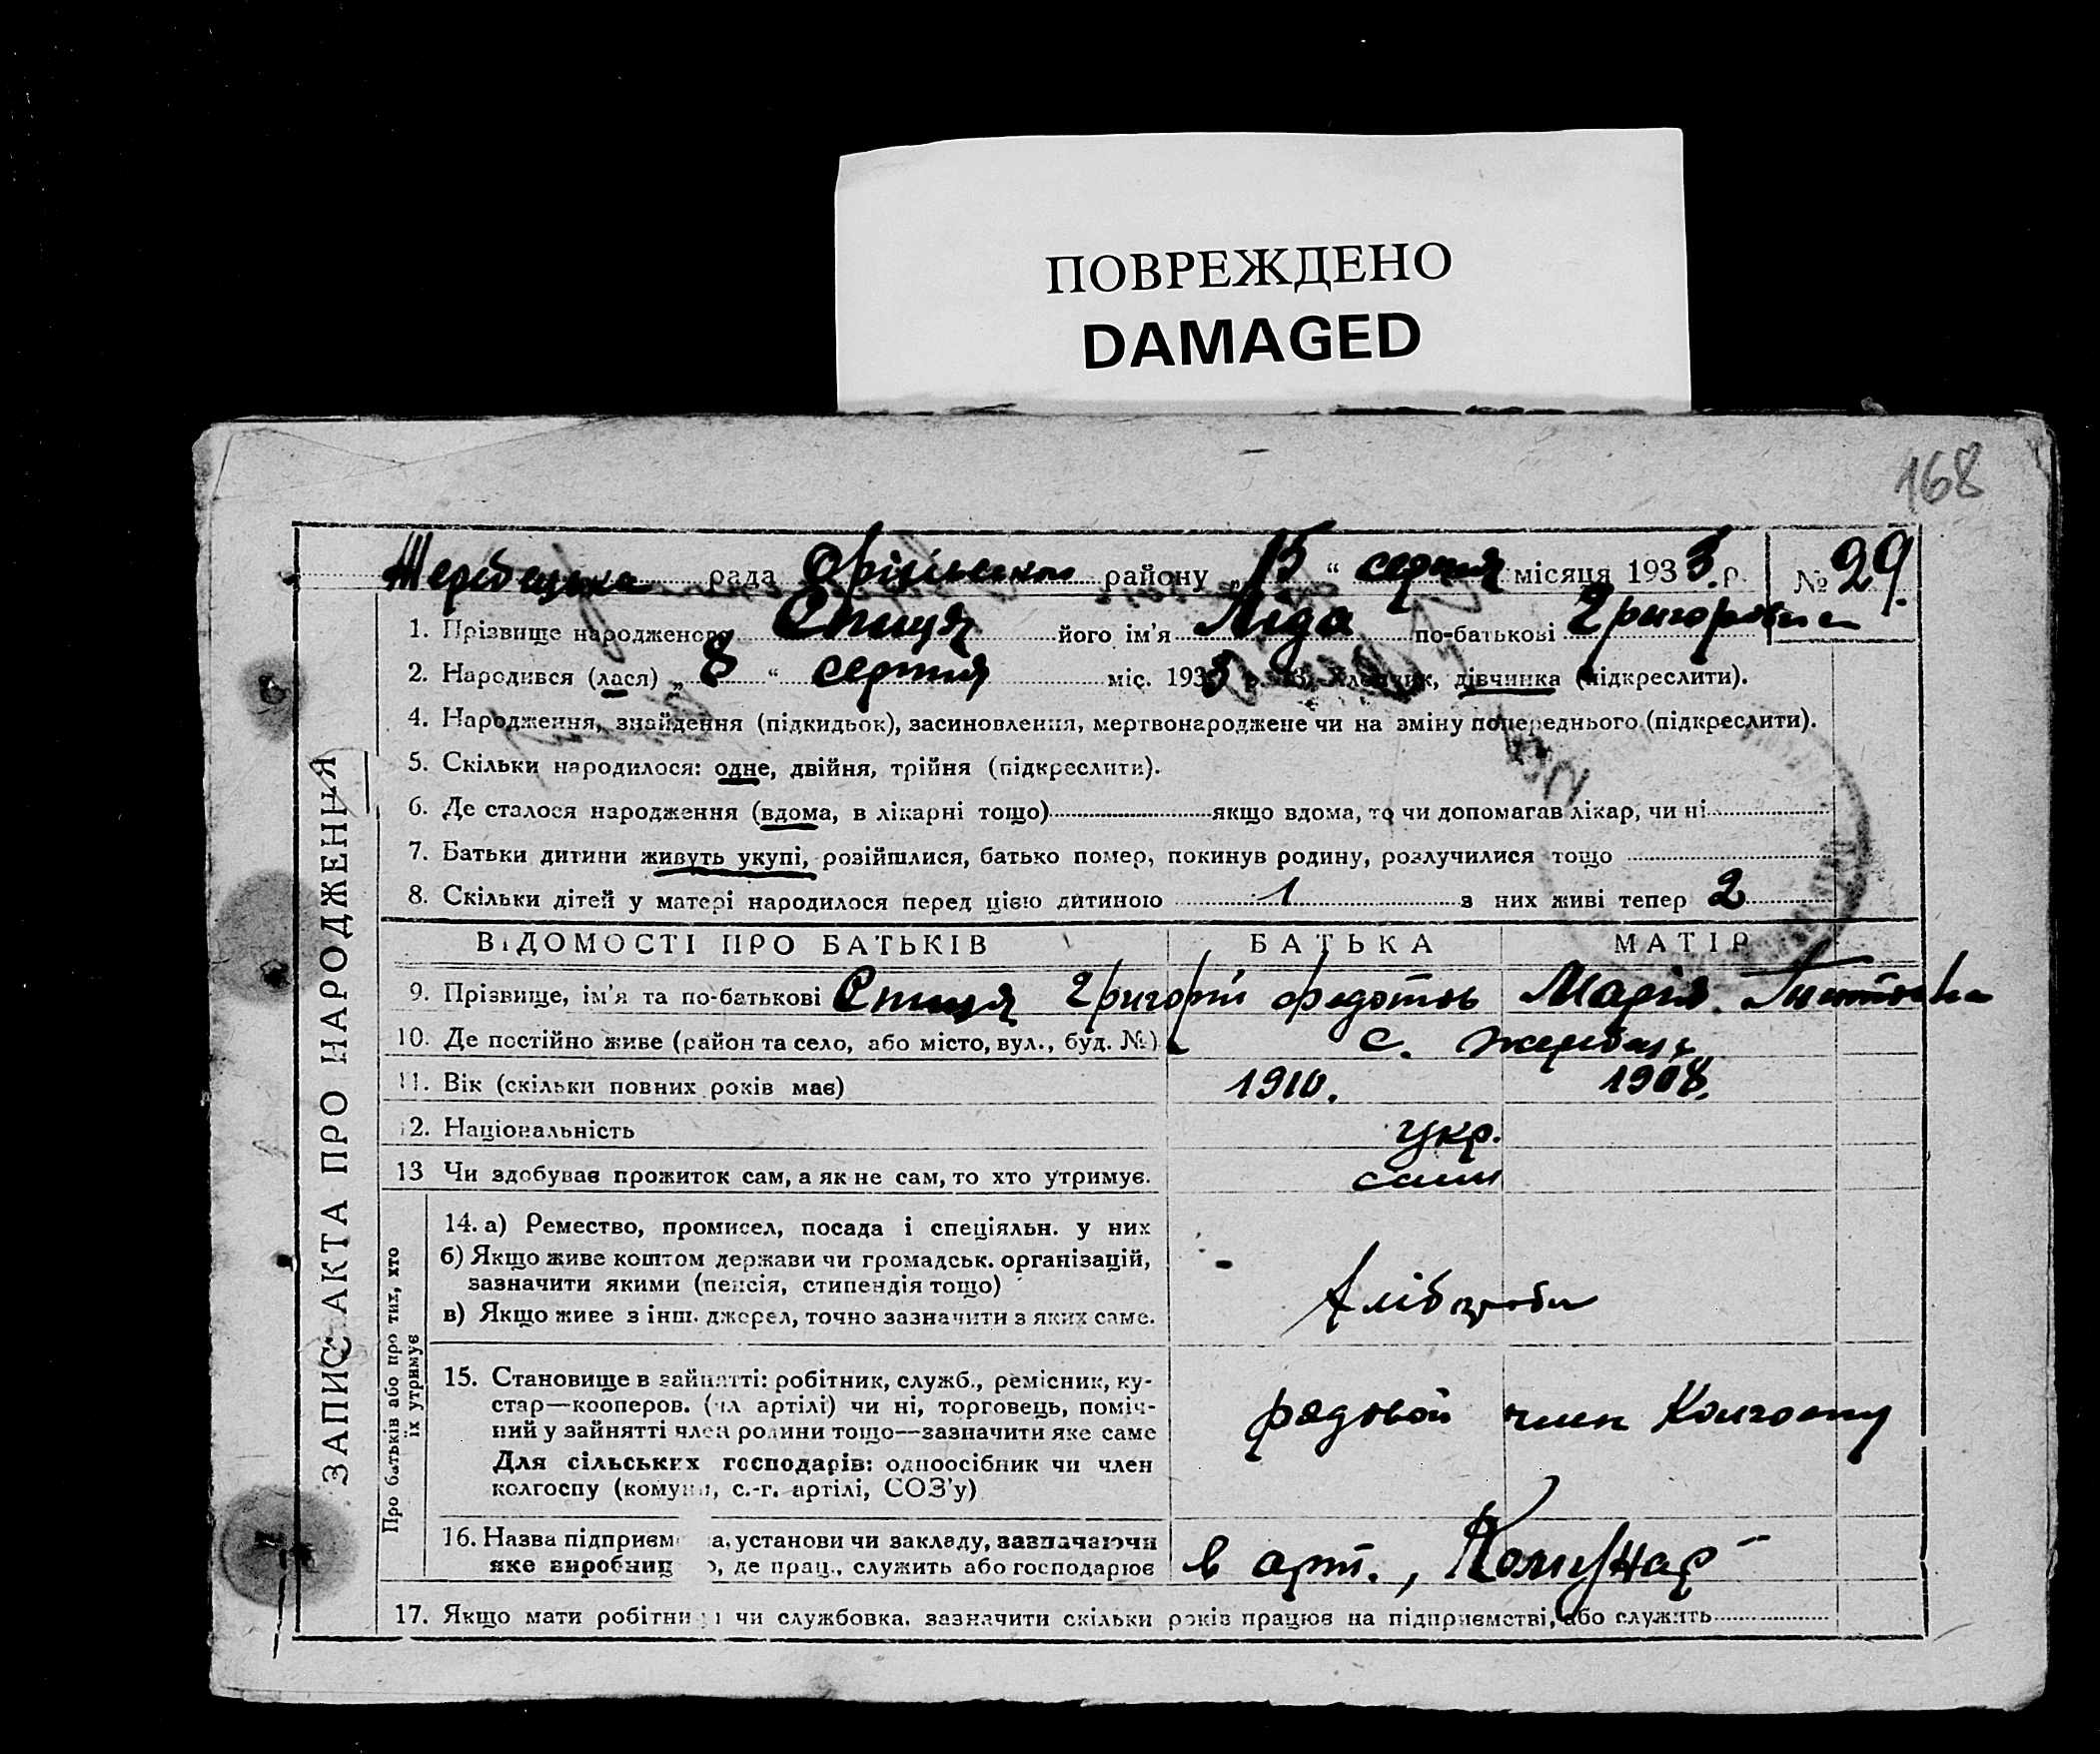 ПОВРЕЖДЕНО
DAMAGED
168
Жеребецька рада Оріхівського району „ 15 “ серпня місяця 1933 р. № 29.
1. Прізвище народженого Спиця його ім'я Ліда по-батькові Григоровна
2. Народився (лася) „ 8 “ серпня міс. 1933 р. 3. Хлопчик, дівчинка (підкреслити).
4. Народження, знайдення (підкидьок), засиновлення, мертвонароджене чи на зміну попереднього (підкреслити).
5. Скільки народилося: одне, двійня, трійня (підкреслити).
6. Де сталося народження (вдома, в лікарні тощо) якщо вдома, то чи допомагав лікар, чи ні
7. Батьки дитини живуть укупі, розійшлися, батько помер, покинув родину, розлучилися тощо
8. Скільки дітей у матері народилося перед цією дитиною 1 з них живі тепер 2
ВІДОМОСТІ ПРО БАТЬКІВ БАТЬКА МАТІР
9. Прізвище, ім'я та по-батькові Спиця Григорій Федотов Марія
10. Де постійно живе (район та село, або місто, вул., буд. №) с. Жеребець
11. Вік (скільки повних років має) 1910. 1908.
12. Національність укр.
13 Чи здобував прожиток сам, а як не сам, то хто утримує. сами
14. а) Ремество, промисел, посада і спеціяльн. у них
б) Якщо живе коштом держави чи громадськ. організацій,
зазначити якими (пенсія, стипендія тощо)
в) Якщо живе з інш. джерел, точно зазначити з яких саме.
Хлібороби
15. Становище в зайнятті: робітник, служб., ремісник, ку-
стар—кооперов. (чл артілі) чи ні, торговець, поміч-
ний у зайнятті член родини тощо—зазначити яке саме
Для сільських господарів: одноосібник чи член
колгоспу (комуни, с.-г. артілі, СОЗ'у)
рядовой член Колгоспу
16. Назва підприєм а, установи чи закладу, зазначаючи
яке виробниц о, де прац., служить або господарює
в арт. „Комунар“
17. Якщо мати робітниця чи службовка, зазначити скільки років працює на підприємстві, або служить
ЗАПИС АКТА ПРО НАРОДЖЕННЯ
Про батьків або про тих, хто
їх утримує